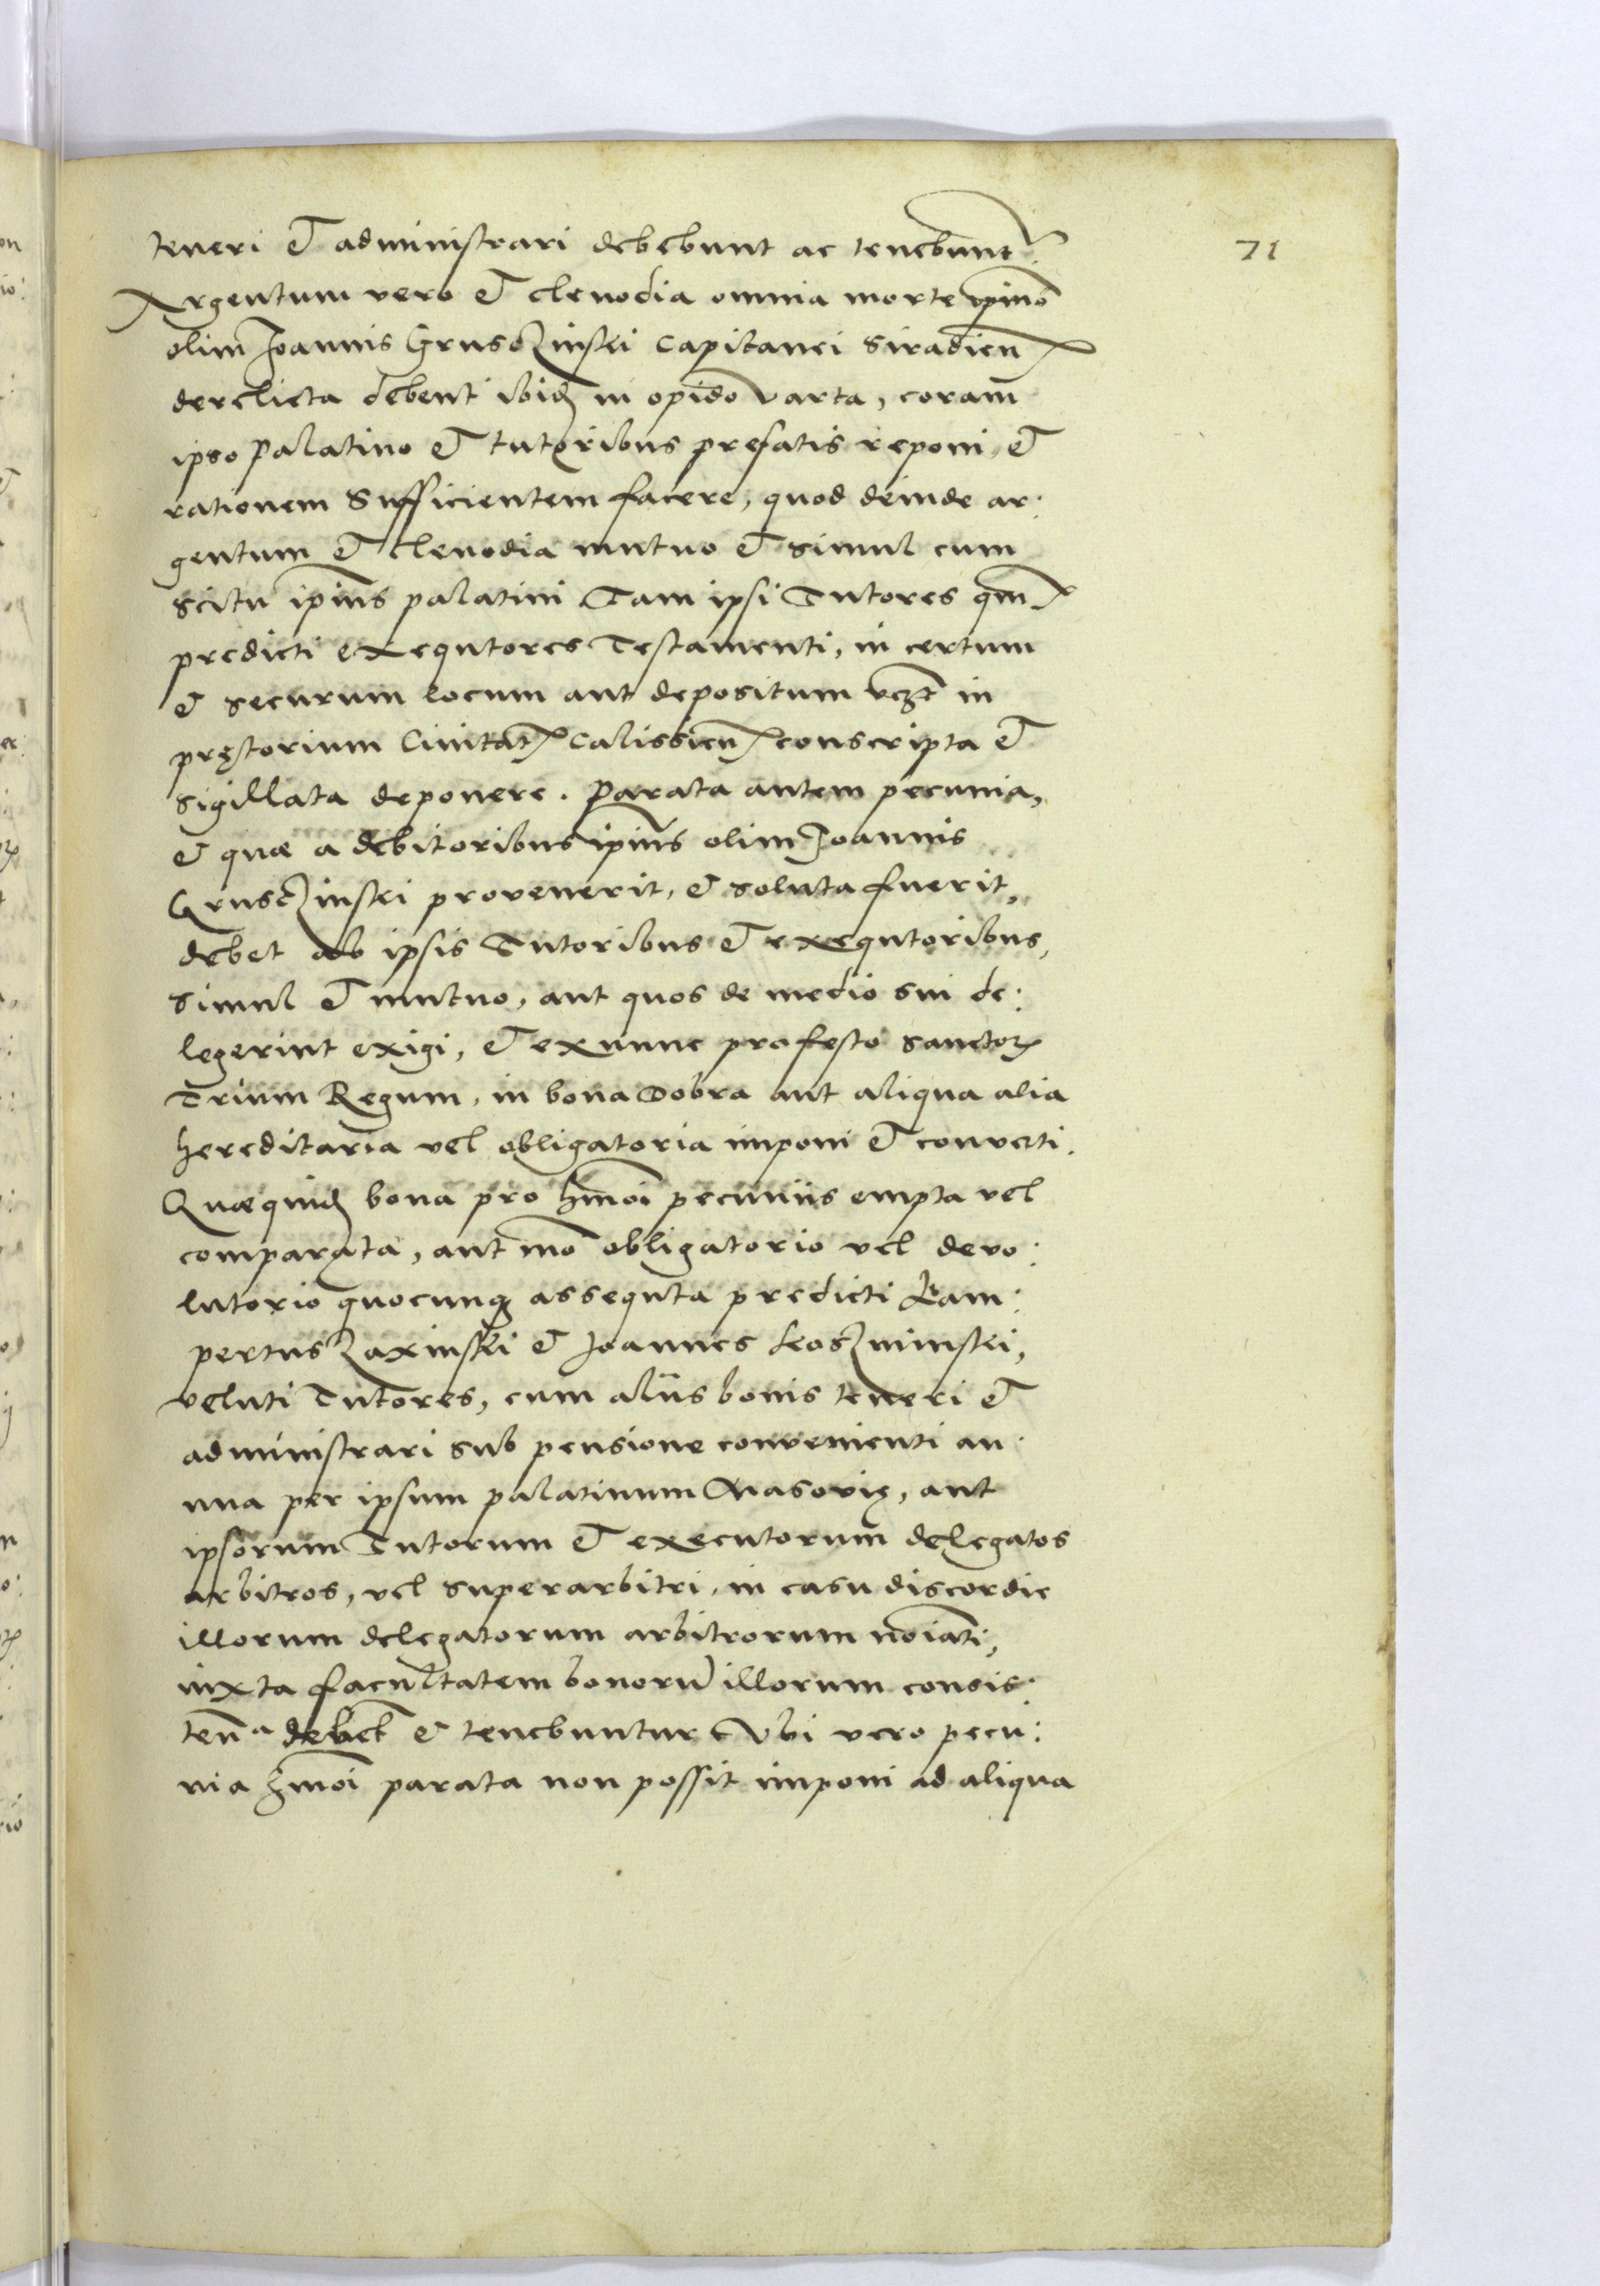 71
teneri et administrari debebunt ac tenebunt᷑.
Argentum vero et clenodia omnia morte ip̄ius
olim Joannis Grusczinski Capitanei Siradien̄
derelicta debent ibidē in opido Varta, coram
ipso Palatino et tutoribus prefatis reponi et
rationem sufficientem facere, quod deinde ar:
gentum et clenodia mutuo et simul cum
scitu ip̄ius palatini Tam ipsi Tutores qm̄
predicti exequtores Testamenti, in certum
et securum locum aut depositum vcȝt in
pręstorium Civitat̄ Calissien̄ conscripta et
sigillata deponere. Parata autem pecunia,
et quæ a debitoribus ip̄ius olim Joannis
Grusczinski provenerit, et soluta fuerit,
debet ab ipsis Tutoribus et exequtoribus,
simul et mutuo, aut quos de medio sui de:
legerint exigi, et exnunc pro festo sanctoꝝ
Trium Regum, in bona Dobra aut aliqua alia
hereditaria vel obligatoria imponi et converti.
Quæquidē bona pro hm̄oi pecuniis empta vel
comparata, aut mō obligatorio vel devo:
lutorio quocunqꝫ assequta predicti Lam:
pertus Zaxinski et Joannes Leszminski,
veluti Tutores, cum aliis bonis teneri et
administrari sub pensione convenienti an:
nua per ipsum palatinum Masovię, aut
ipsorum Tutorum et executorum delegatos
arbitros, vel superarbitri, in casu discordie
illorum delegatorum arbitrorum noīati,
iuxta facultatem bonorū illorum consis:
ten̄ debēt et tenebuntur Ubi vero pecu:
nia hm̄oi parata non possit imponi ad aliqua